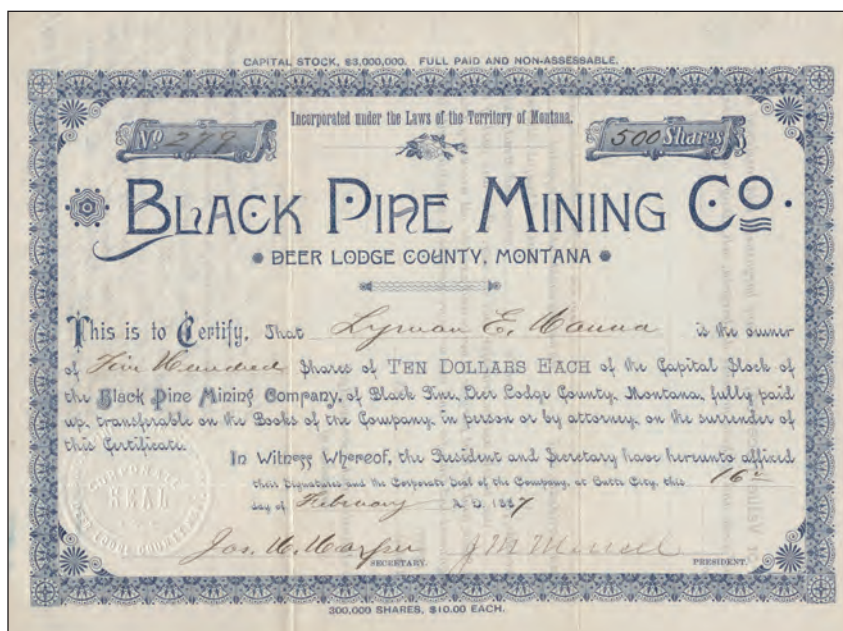 CAPITAL STOCK, $3,000,000. FULL PAID AND NON-ASSESSABLE.
Incorporated under the Laws of the Territory of Montana.
No 279
500 Shares
BLACK PINE MINING Co.
DEER LODGE COUNTY, MONTANA
This is to Certify, That Lyman E. Hanna is the owner
of Five Hundred Shares of TEN DOLLARS EACH of the Capital Stock of
the Black Pine Mining Company, of Black Pine, Deer Lodge County, Montana, fully paid
up, transferable on the Books of the Company, in person or by attorney, on the surrender of
this Certificate.
In Witness Whereof, the President and Secretary have hereunto affixed
their Signatures and the Corporate Seal of the Company, at Butte City, this 16th
day of February A. D. 1887
CORPORATE
SEAL
DEER LODGE COUNTY
Jos. H. Harper
SECRETARY.
J M Merrell
PRESIDENT.
300,000 SHARES, $10.00 EACH.